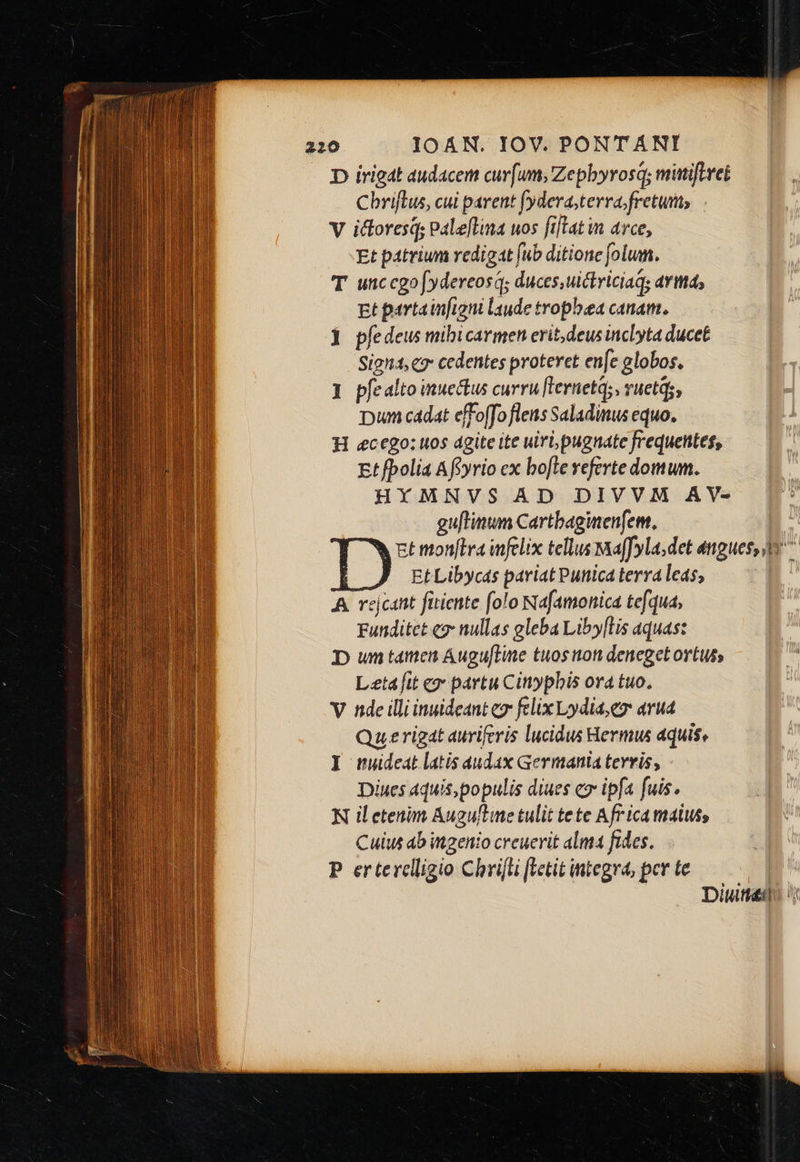 220 IOAN. IOV. PONTANI
D irigat audacem curſum, Zephyrosq; miniſtret
Chriſtus, cui parent ſydera, terra, fretum,
V ictoresq; Paleſtina uos ſiſtat in arce,
Et patrium redigat ſub ditione ſolum.
T unc ego ſydereosq; duces, uictriciaq; arma,
Et parta inſigni laude trophæa canam.
I pſe deus mihi carmen erit, deus inclyta ducet
Signa, & cedentes proteret enſe globos.
I pſe alto inuectus curru ſternetq;, ruetq;,
Dum cadat effoſſo flens Saladinus equo.
H æc ego: uos agite ite uiri, pugnate frequentes,
Et ſpolia Aſſyrio ex hoſte referte domum.
HYMNVS AD DIVVM AV-
guſtinum Carthaginenſem.
D Et monſtra infelix tellus Maſſyla, det angues,
Et Libycas pariat Punica terra leas,
A rejcant ſitiente ſolo Naſamonica teſqua,
Funditet & nullas gleba Libyſtis aquas:
D um tamen Auguſtine tuos non deneget ortus,
Læta ſit & partu Cinyphis ora tuo.
V nde illi inuideant & felix Lydia, & arua
Quæ rigat auriferis lucidus Hermus aquis.
I nuideat latis audax Germania terris,
Diues aquis, populis diues & ipſa ſuis.
N il etenim Auguſtine tulit te te Africa maius,
Cuius ab ingenio creuerit alma fides.
P er te relligio Chriſti ſtetit integra, per te